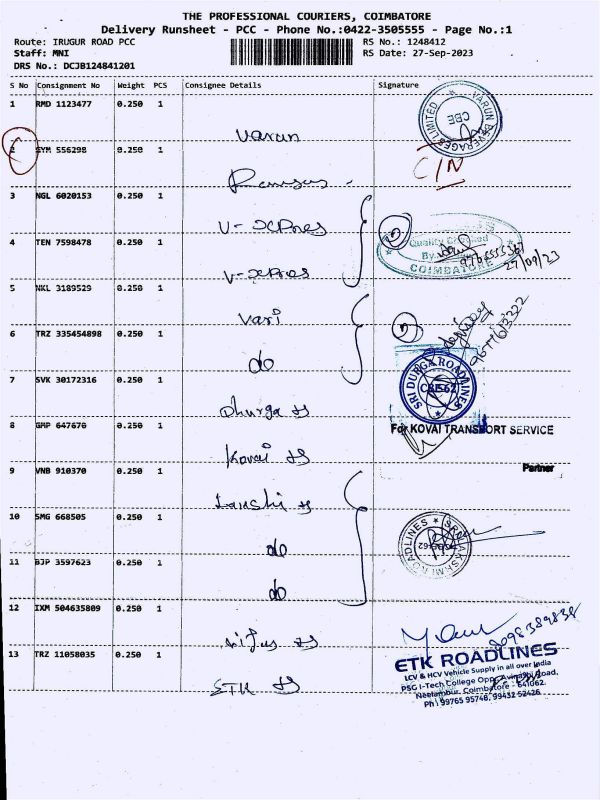 THE PROFESSIONAL COURIERS, COIMBATORE
Delivery Runsheet - PCC - Phone No.:0422-3505555 - Page No.:1
Route: IRUGUR ROAD PCC
RS No.: 1248412
Staff: MNI
RS Date: 27-Sep-2023
DRS No.: DCJB124841201
S No Consignment No Weight PCS Consignee Details Signature
1 RMD 1123477 0.250 1
VARUN BEVERAGES LIMITED
CBE
Varun
2 SYM 556298 0.250 1
C/N
3 NGL 6020153 0.250 1
V-xpres
4 TEN 7598478 0.250 1
Quality
By
COIMBATORE
27/09/23
V-xpres
5 NKL 3189529 0.250 1
Vari
6 TRZ 335454898 0.250 1
do
SRI DURGA ROADLINES
7 SVK 30172316 0.250 1
Dhurga
8 GMP 647670 0.250 1
For KOVAI TRANSPORT SERVICE
Kovai
9 VNB 910370 0.250 1
Partner
10 SMG 668505 0.250 1
ROADLINES
do
11 BJP 3597623 0.250 1
do
12 IXM 504635809 0.250 1
13 TRZ 11058035 0.250 1
ETK ROADLINES
LCV & HCV Vehicle Supply in all over India
PSG I-Tech College Opp, Avinashi Road,
Neelambur, Coimbatore - 641062.
Ph : 99765 95746, 99432 52426
ETK